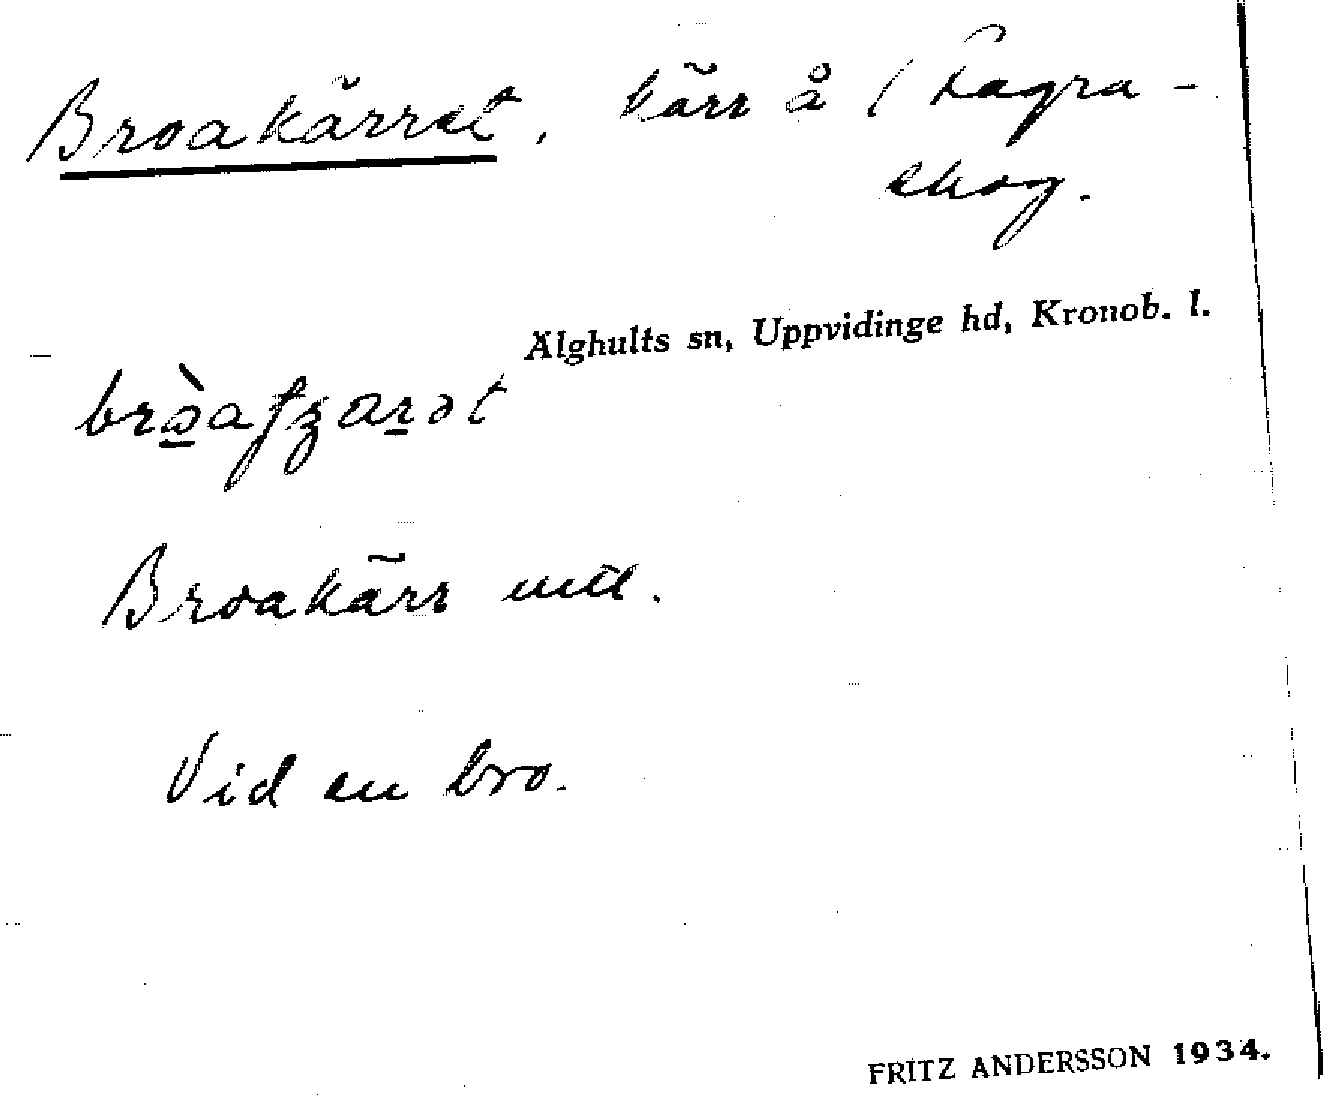 Broakärret, kärr å ( Fagra-
skog.
Älghults sn, Uppvidinge hd, Kronob. l.
Broakärr
Vid en bro.
FRITZ ANDERSSON 1934.